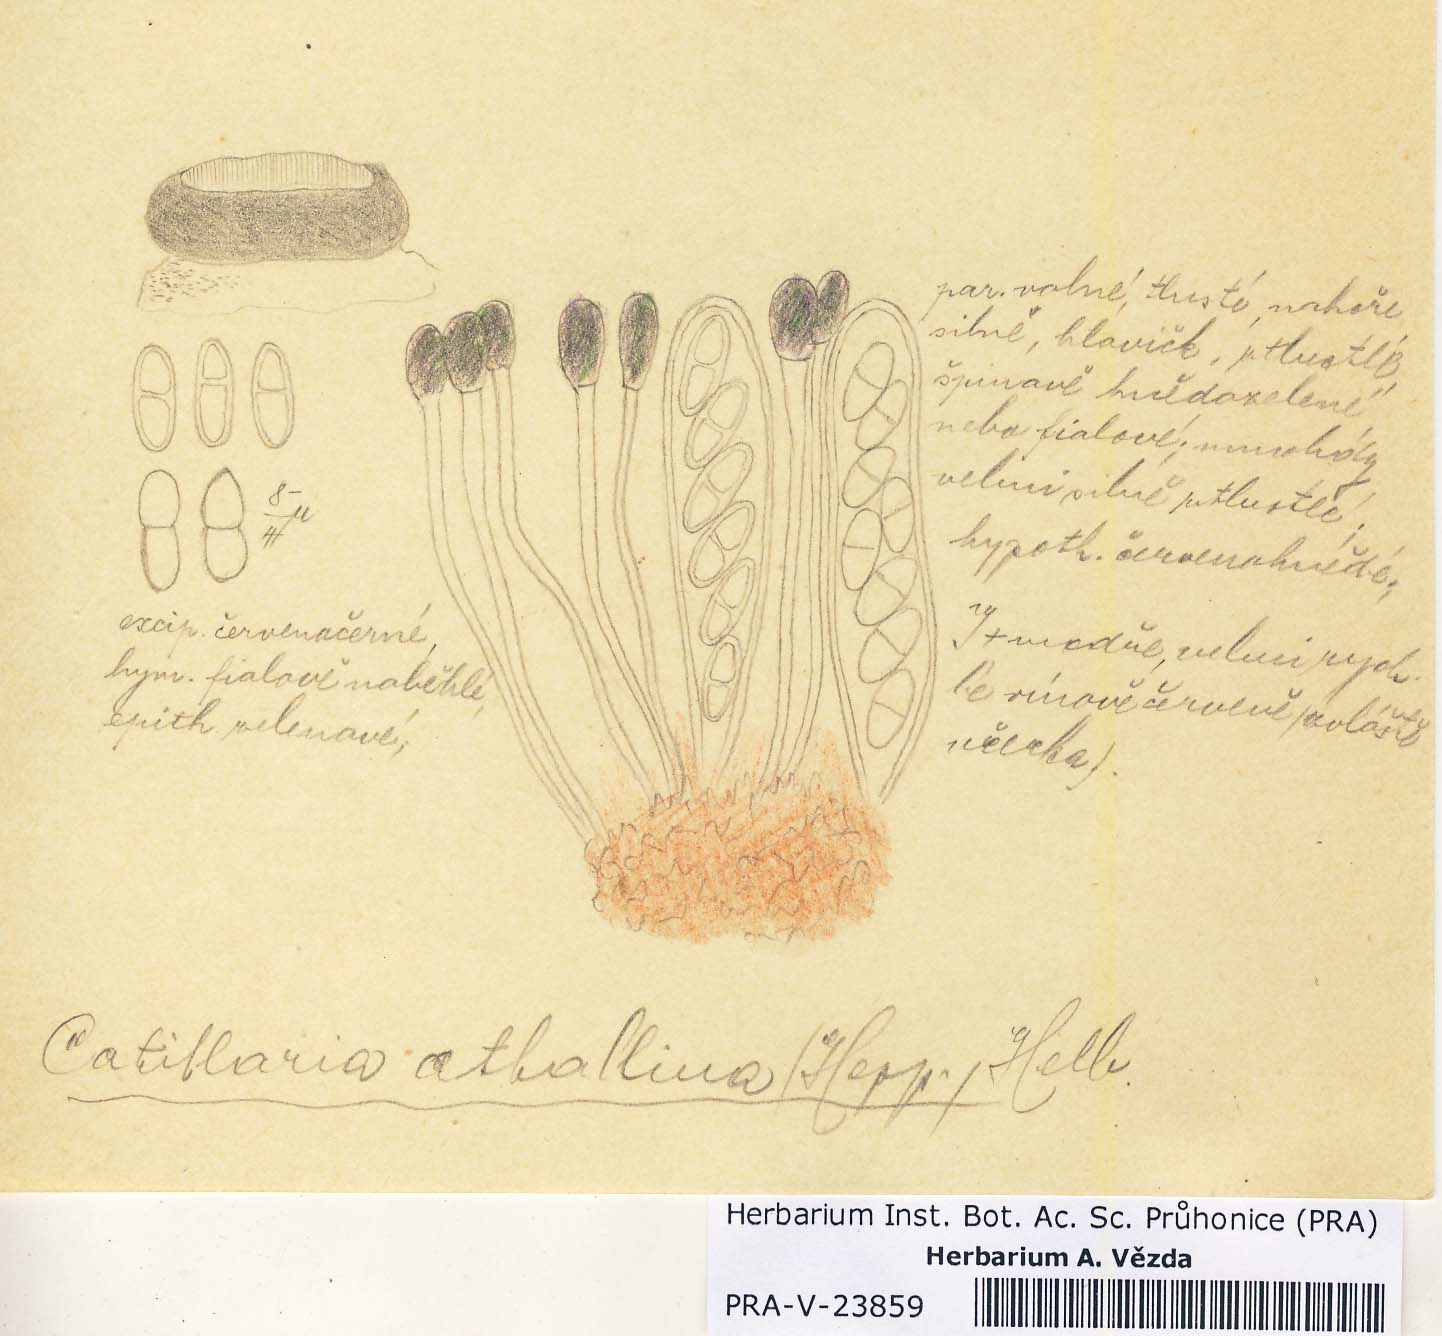 par. volné, tlusté, nahoře
silně, hlavičk. ztlustlé
špinavě hnědozelené
nebo fialové, mnohdy
velmi silně ztlustlé,
hypoth. červenohnědé,
J + modře, velmi rych-
le vínově červeně (zvláště
vřecka).
8-
4 µ
excip. červenočerné,
hym. fialově naběhlé,
epith zelenavé,
Catillaria athallina (Hepp.) Hellb.
Herbarium Inst. Bot. Ac. Sc. Průhonice (PRA)
Herbarium A. Vězda
PRA-V-23859